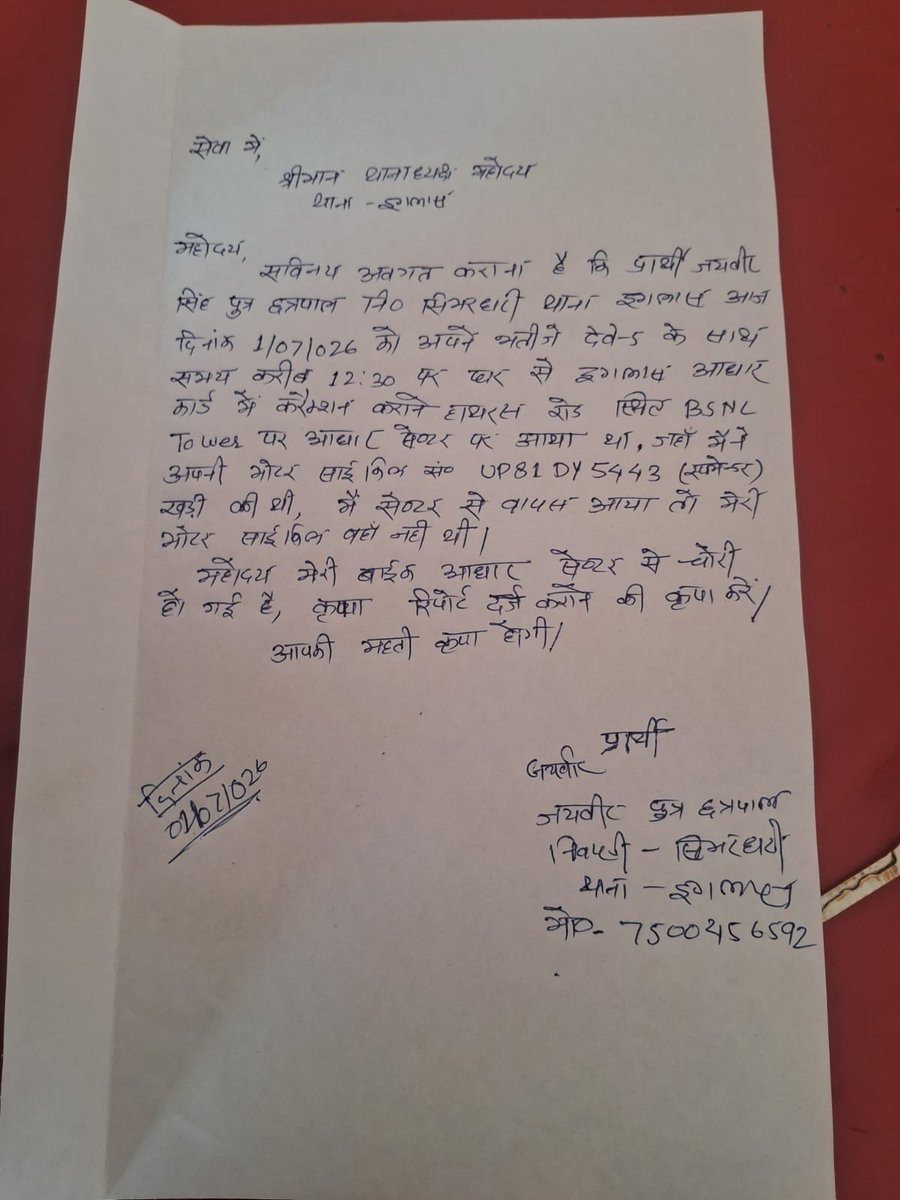 सेवा में,
श्रीमान थानाध्यक्ष महोदय
थाना - इगलास
महोदय,
सविनय अवगत कराना है कि प्रार्थी जयवीर
सिंह पुत्र छत्रपाल नि० सिमरधरी थाना इगलास आज
दिनांक 1/07/026 को अपने भतीजे देवेन्द्र के साथ
समय करीब 12:30 पर घर से इगलास आधार
कार्ड में करैक्शन कराने हाथरस रोड स्थित BSNL
Tower पर आधार सेण्टर पर आया था, जहाँ मैने
अपनी मोटर साईकिल सं० UP81DY5443 (स्पलेन्डर)
खड़ी की थी, मैं सेण्टर से वापस आया तो मेरी
मोटर साईकिल वहाँ नही थी।
महोदय मेरी बाईक आधार सेण्टर से चोरी
हो गई है, कृपया रिपोर्ट दर्ज कराने की कृपा करें/
आपकी महती कृपा होगी/
प्रार्थी
जयवीर
जयवीर पुत्र छत्रपाल
निवासी - सिमरधरी
थाना - इगलास
मो०- 7500456592
दिनांक
01/07/026